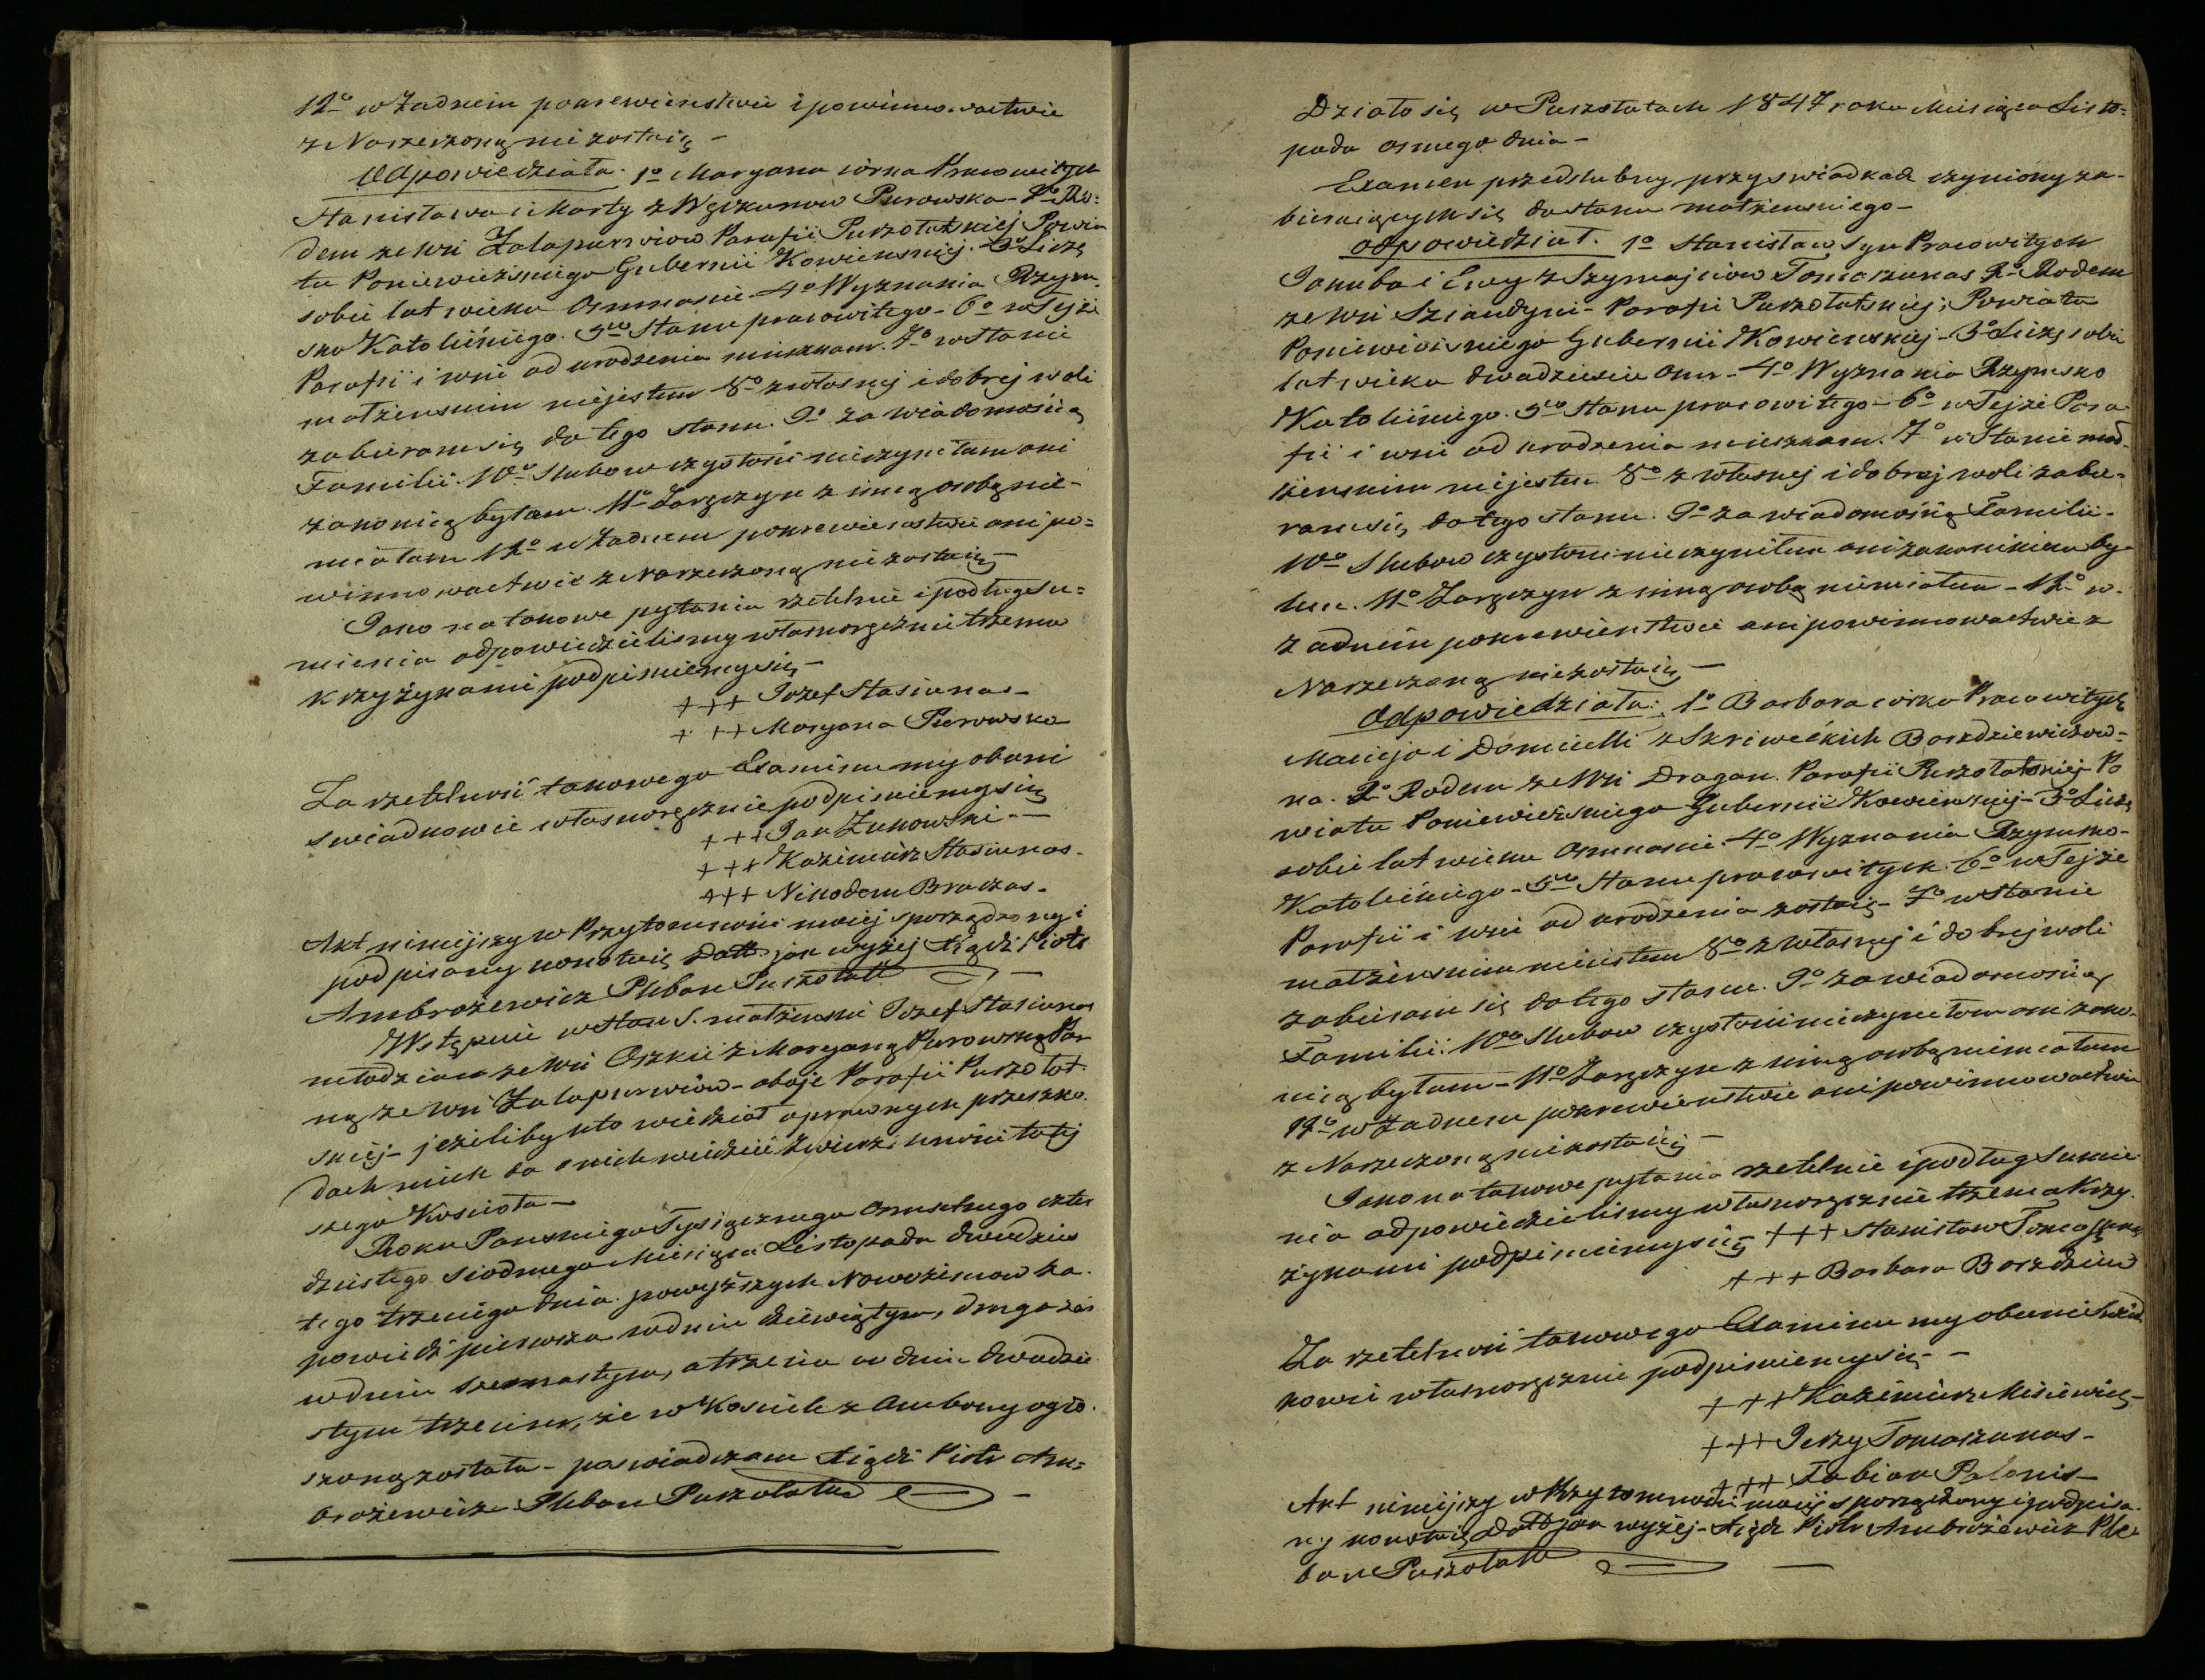 12º w Żadnem pokrewienstwie i powinnowactwie
z Narzeczoną nie zostaię –
Odpowiedziała. 1º Maryana córka Pracowitych
Stanisława i Marty z Węczkunow Purowska – 2º Ro-
dem ze Wsi Załapurwiow Parafii Puszołatskiej Powia
tu Poniewieżskiego Gubernii Kowienskiej. 3º Liczę
sobie lat wieku Osmnascie. 4º Wyznania Rzym-
sko Katolickiego. 5to Stanu pracowitego – 6º w Tejże
Parafii i wsi od urodzenia mieszkam. 7º w Stanie
małżenskim niejestem 8º z własnej i dobrej woli
zabieram się do tego stanu. 9º za wiadomością
Familii. 10º Slubow czystości nieczyniłam ani
zakonicą byłam. 11º Zaręczyn z inną osobą nie-
miałam 12º w Żadnem pokrewienstwie ani po-
winnowactwie z Narzeczoną nie zostaię –
Jako na takowe pytania rzetelnie i podług su-
mienia odpowiedzielismy własnoręcznie trzema
krzyżykami podpisuiemy się –
+++ Jozef Stasiunas –
+++ Maryana Purowska
Za rzetelność takowego Examinu my obecni
swiadkowie własnoręcznie podpisuiemy się
+++ Jan Żukowski –
+++ Kazimierz Stasiunas –
+++ Nikodem Braczas –
Akt niniejszy w Przytomności moiej sporządzony i
podpisany konotuię Datt jak wyżej Xiądz Piotr
Ambrożewicz Pleban Puszołatt
Wstępuie w Stan S. małżenski Jozef Stasiunas
młodzian ze Wsi Oszkie z Maryaną Purowską Pan
ną ze Wsi Załapurwiow – oboje Parafii Puszołat
skiej – jeżeliby kto wiedział o prawnych przeszko
dach niech da o nich wiedzieć Zwierzchności tutej
szego Kosciola –
Roku Panskiego Tysiącznego Osmsetnego czter
dziestego Siodmego Miesiąca Listopada dwudzies
tego trzeciego dnia powyższych Nowożencow Za-
powiedz pierwsza w dniu dziewiątym, druga zaś
w dniu szesnastym, a trzecia w dniu dwudzie
stym trzecim, że w Kosciele z Ambony ogło-
szoną została – poswiadczam Xiądz Piotr Am-
brożewicz Pleban Puszołatski
Działo się w Puszołatach 1847 roku Miesiąca Listo-
pada osmego dnia –
Examen przedslubny przy swiadkach czyniony za-
bieraiącym się do stanu małżenskiego –
Odpowiedział. 1º Stanisław Syn Pracowitych
Jakuba i Ewy z Szymayciow Tomaszunas 2º Rodem
ze Wsi Sziandyni – Parafii Puszołatskiej, Powiatu
Poniewieżskiego Gubernii Kowienskiej – 3º Liczę sobie
lat wieku dwadziescia Osm – 4º Wyznania Rzymsko
Katolickiego. 5to Stanu pracowitego – 6º w Tejże Para-
fii i wsi od urodzenia mieszkam. 7º w Stanie mał-
żenskim niejestem 8º z własnej i dobrej woli zabie-
ram się do tego stanu. 9º za wiadomością Familii –
10º Slubow czystości nieczyniłem ani zakonikiem by-
łem. 11º Zaręczyn z inną osobą niemiałem – 12º w
żadnem pokrewienstwie ani powinnowactwie z
Narzeczoną niezostaię –
Odpowiedziała: 1º Barbara córka Pracowitych
Macieja i Domicelli z Skriweckich Barzdziewiczow-
na. 2º Rodem ze Wsi Dragan. Parafii Puszołatskiej Po
wiatu Poniewieżskiego Gubernii Kowienskiej – 3º Liczę
sobie lat wieku Osmnascie. 4º Wyznania Rzymsko-
Katolickiego – 5to Stanu pracowitych. 6º w Tejże
Parafii i wsi od urodzenia zostaię – 7º w Stanie
małżenskim nieiestem 8º z własnej i dobrej woli
zabieram się do tego stanu. 9º za wiadomością
Familii: 10º Slubow czystości nieczyniłam ani zako-
nicą byłam – 11º Zaręczyn z inną osobą niemiałam
12º w Żadnem pokrewienstwie ani powinnowactwie
z Narzeczoną niezostaię –
Jako na takowe pytania rzetelnie i podług sumie
nia odpowiedzielismy własnoręcznie trzema Krzy-
żykami podpisuiemy się +++ Stanisław Tomaszunas
+++ Barbara Barzdziew
Za rzetelność takowego Examinu my obecni Swiad
kowie własnoręcznie podpisuiemy się –
+++ Kazimierz Misiewicz –
+++ Jerzy Tomaszunas –
+++ Fabian Palonis –
Akt niniejszy w Przytomności moiej sporządzony i podpisa-
ny konotuię Datt jak wyżej – Xiądz Piotr Ambrożewicz Ple-
ban Puszołatt